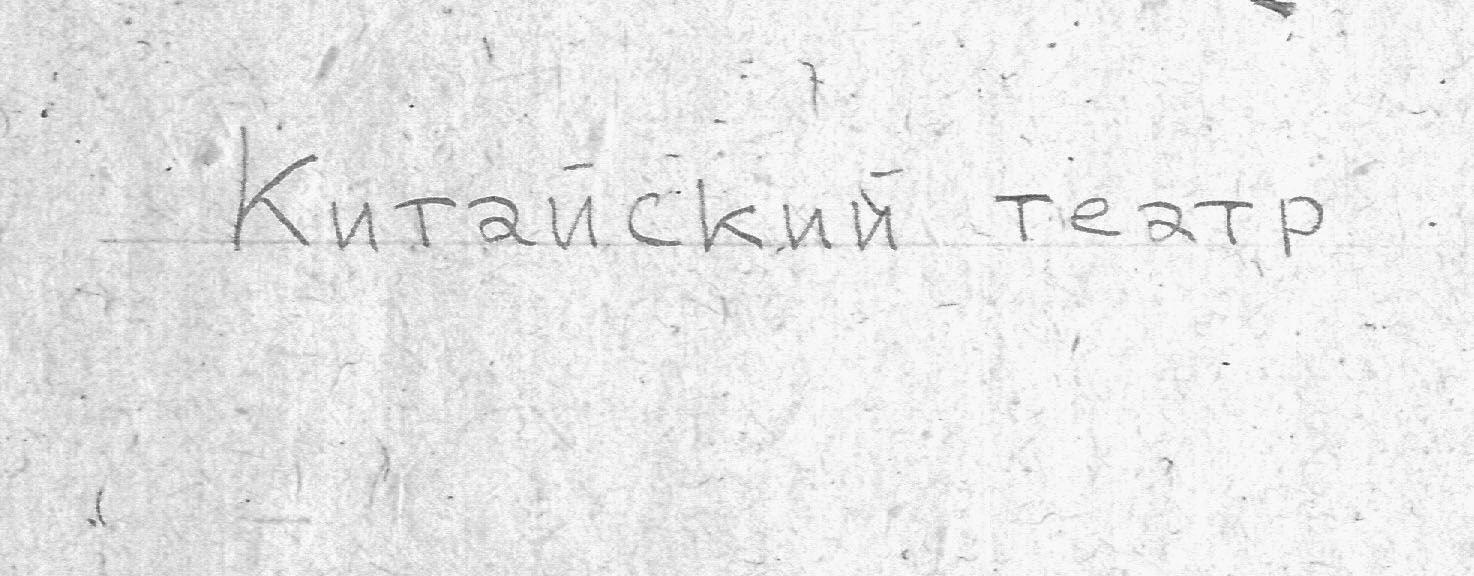 Китайский театр